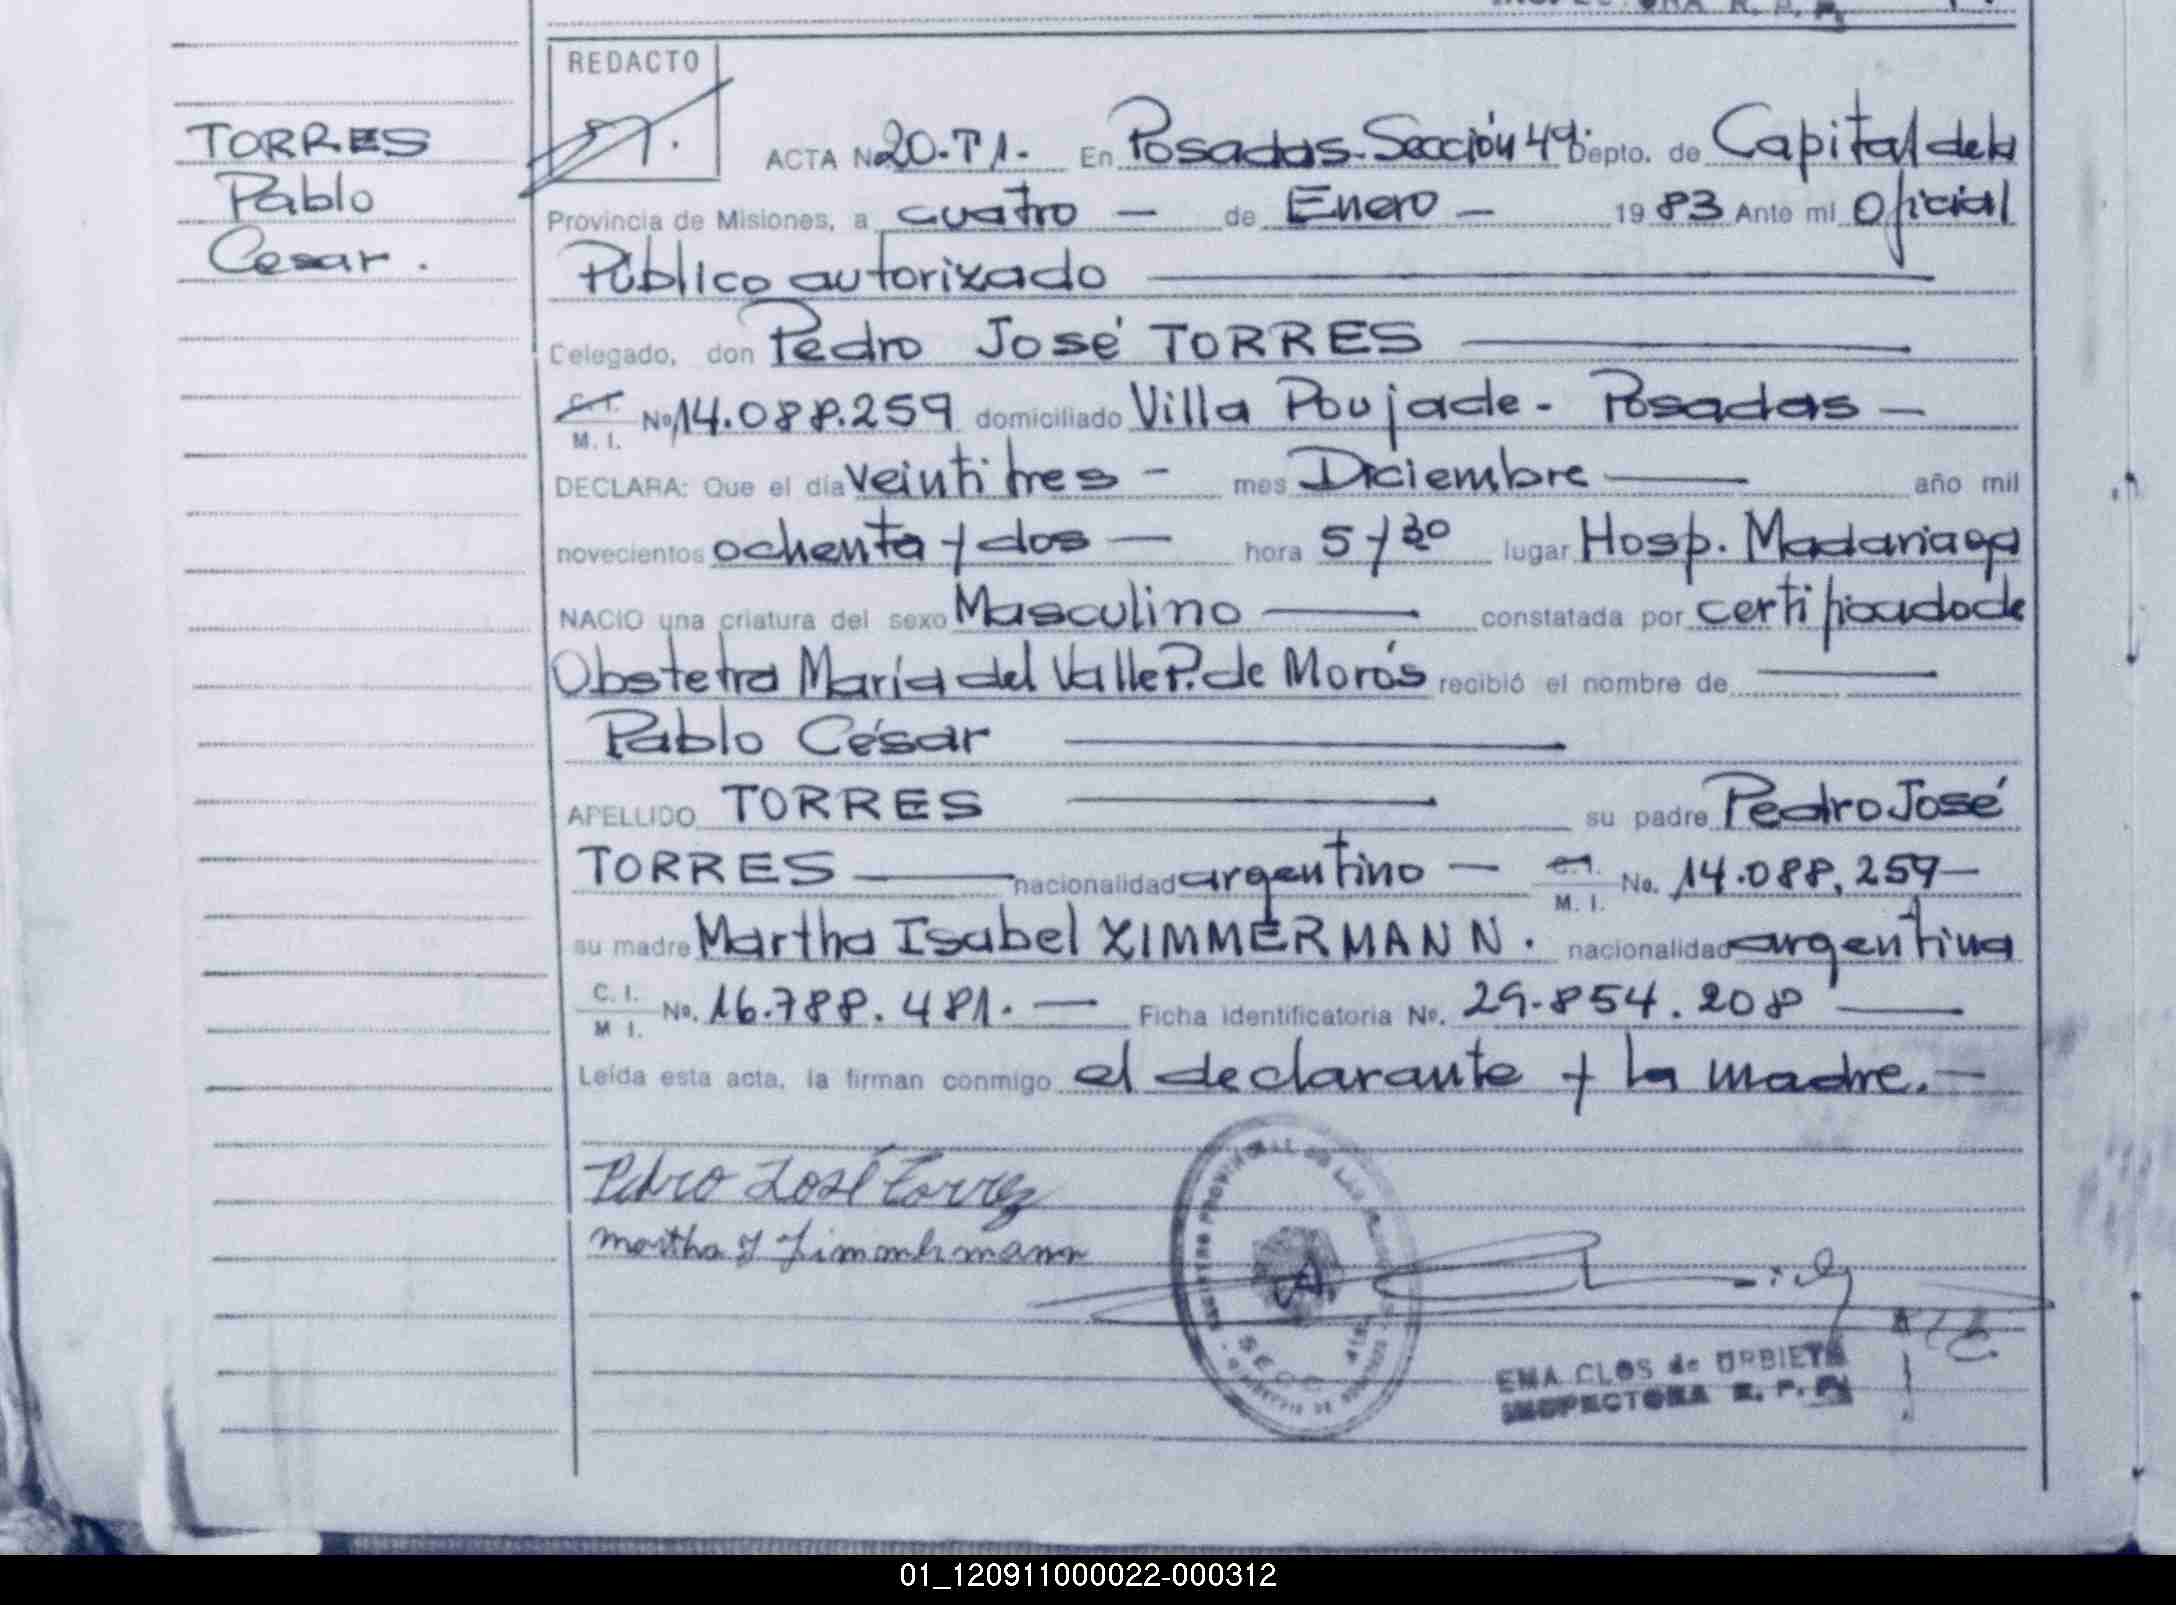 INSPECTORA R. P. P.
REDACTO
TORRES
Pablo
Cesar.
ACTA No 20-T1. En Posadas-Sección 4º. Depto. de Capital de la
Provincia de Misiones, a cuatro — de Enero — 19 83 Ante mi Oficial
Público autorizado
Delegado, don Pedro José TORRES
C. I. M. I. No 14.088.259 domiciliado Villa Poujade - Posadas —
DECLARA: Que el día veintitres — mes Diciembre — año mil
novecientos ochenta y dos — hora 5 y 30 lugar Hosp. Madariaga
NACIO una criatura del sexo Masculino — constatada por certificado de
Obstetra María del Valle P. de Morós recibió el nombre de
Pablo César
APELLIDO TORRES su padre Pedro José
TORRES — nacionalidad argentino — C. I. M. I. No. 14.088.259—
su madre Martha Isabel ZIMMERMANN. nacionalidad argentina
C. I. M I. No. 16.788.481. — Ficha identificatoria No. 29.854.208 —
Leída esta acta, la firman conmigo el declarante y la madre. —
Pedro José Torrez
Martha I Zimmermann
REGISTRO PROVINCIAL DE LAS
SECC.
EMA CLOS de URBIETA
INSPECTORA R. P. P.
01_120911000022-000312